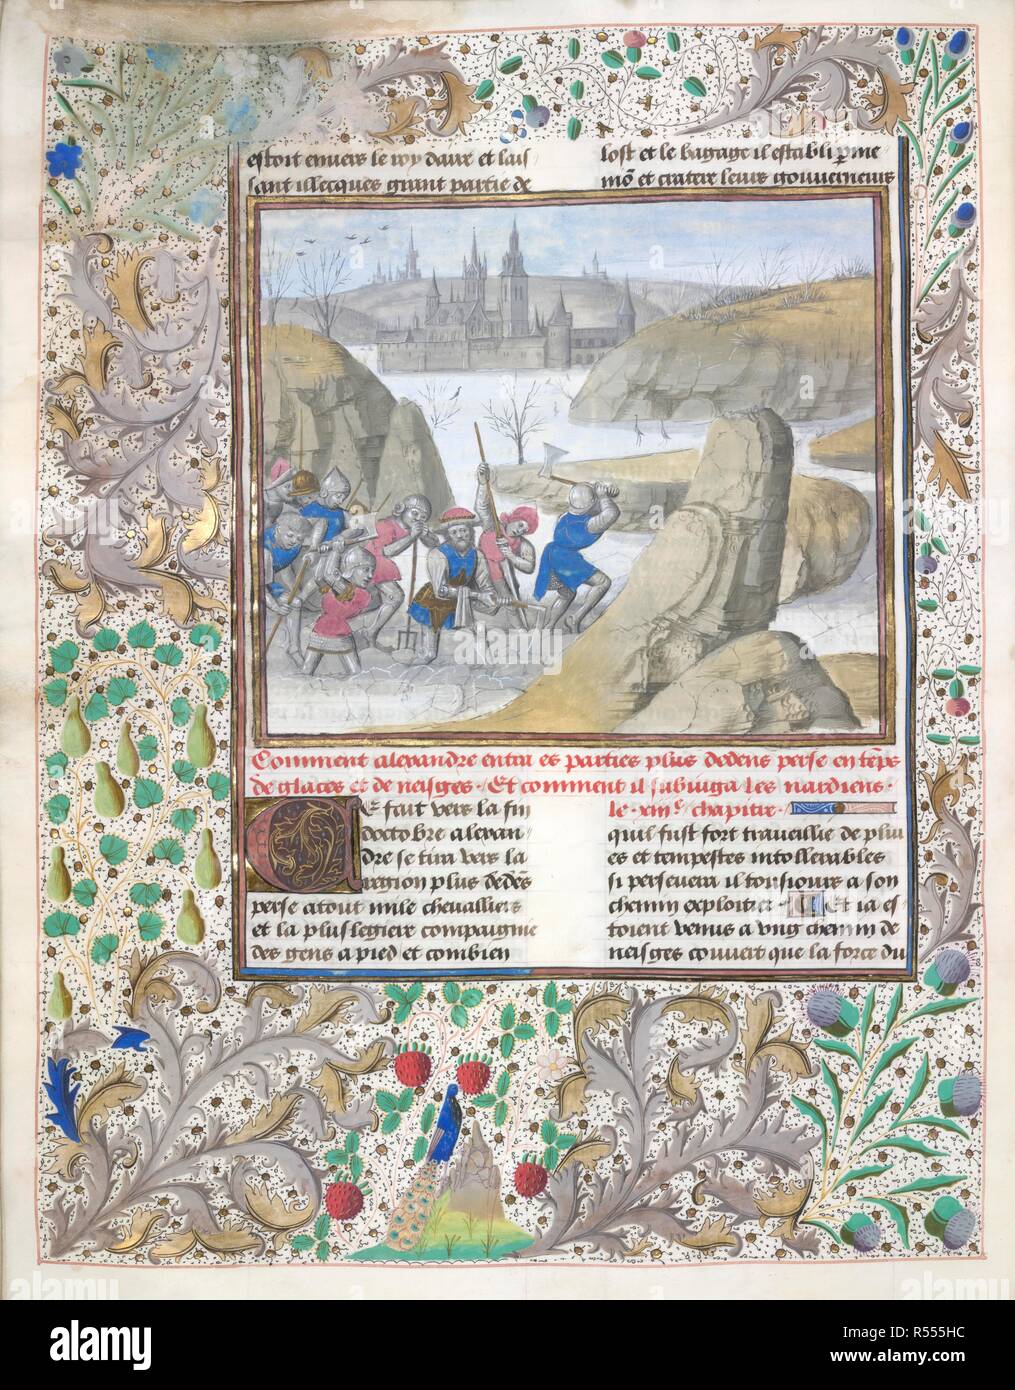 estoit envers le roy daire et lais
sant illecques grant partie de
lost et le bagage il establi
et cratere leurs gouverneurs
Comment alexandre entra es parties plus dedens perse en
de glaces et de neisges. Et comment il subiuga les mardiens.
le xiiiie chapitre.
Ce fait vers la fin
doctobre alexan
dre se tira vers la
region plus
perse atout mile chevalliers
et la plus legiere compaignie
des gens a pied et combien
quil fust fort travueillie de pluu
es et tempestes intollerables
si persevera il tousiours a son
chemin exploitier. Et ia es
toient venus a ung chemin de
neisges couvert que la force du
alamy
a
alamy
Image ID: R555HC
www.alamy.com